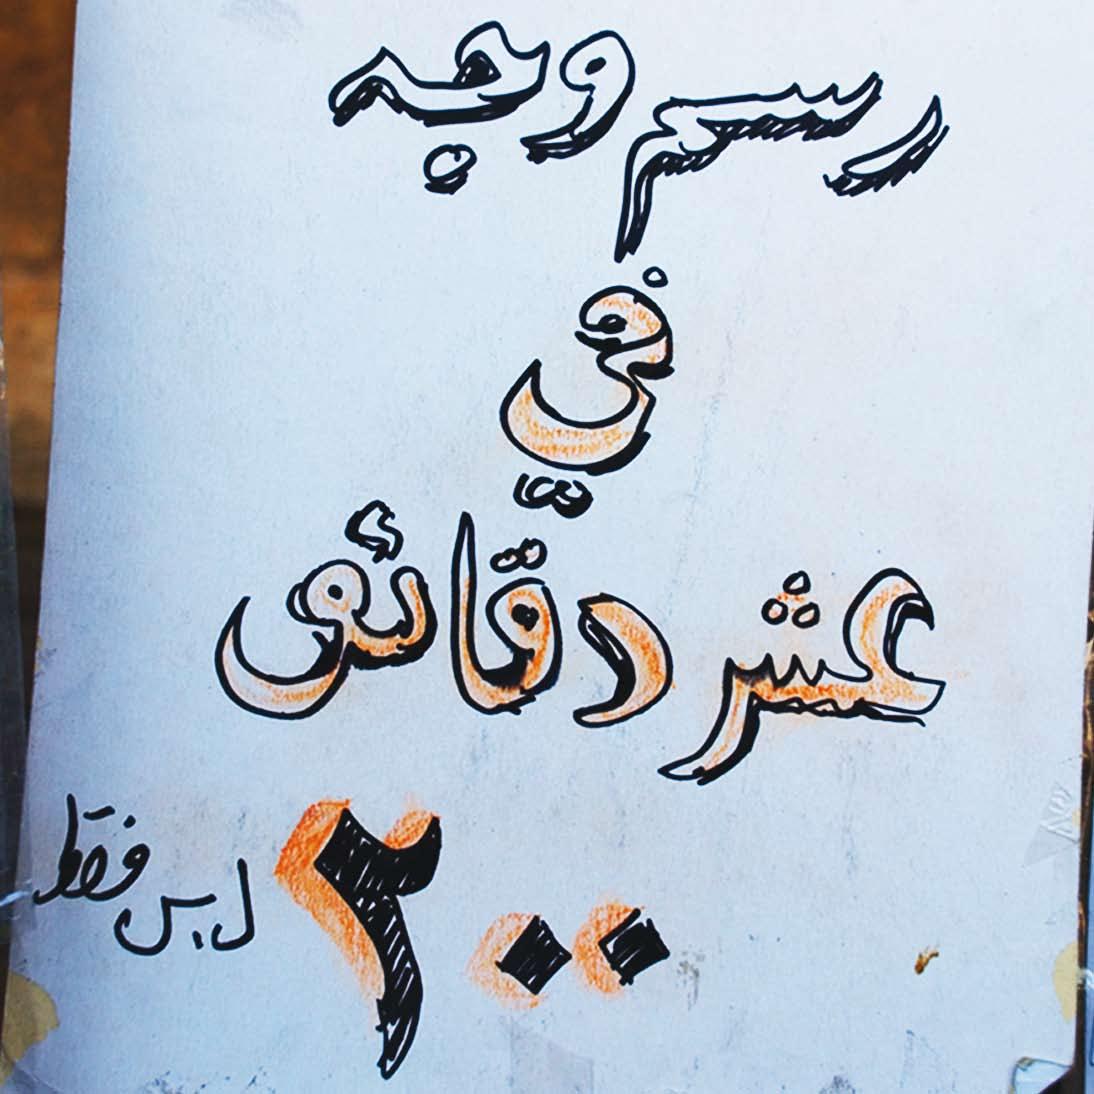 رسم وجه
في
عشر دقائق
٢٠٠ ل.س فقط